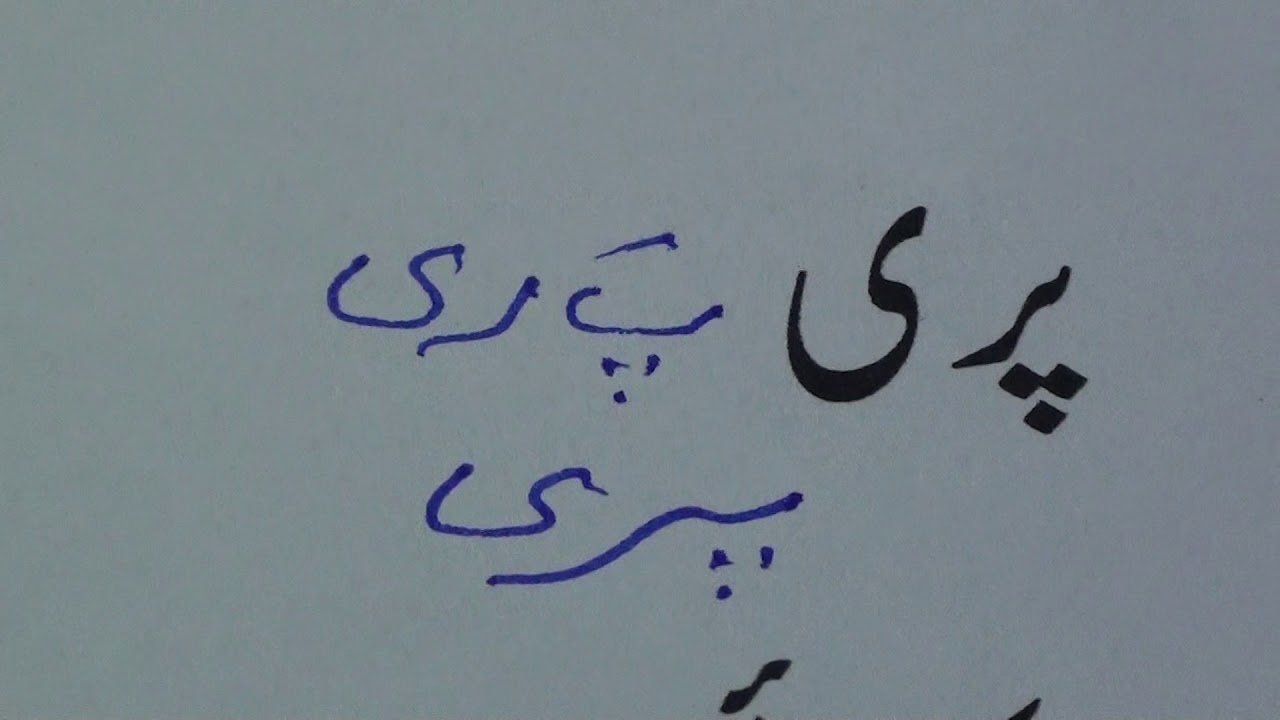 پری پَ ری
پری